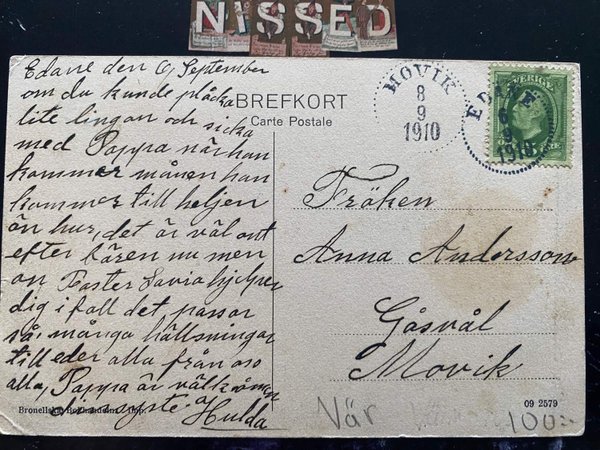 NISSED
Edane den 6 September
om du kunde plåcka
lite lingon och sicka
med Pappa när han
kommer månen han
kommer till heljen
än hur, det är väl ont
efter bären nu men
an Faster Lovia hjelper
dig i fall det passar
så, många hällsningar
till eder alla från oss
alla, Pappa är välkomen
Hulda
BREFKORT
Carte Postale
MOVIK
8
9
1910
SVERIGE
EDANE
6
9
1910
Fröken
Anna Andersson
Gåsvål
Movik
Bronellska Bokhandeln
Imp.
09 2579
Vär
100:-